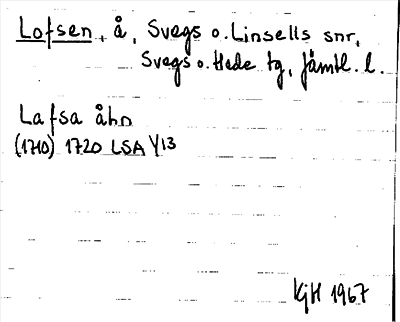 Lofsen, å, Svegs o. Linsells snr,
Svegs o. Hede tg, Jämtl. l.
Lafsa åhn
(1710) 1720 LSA Y13
KjH 1967